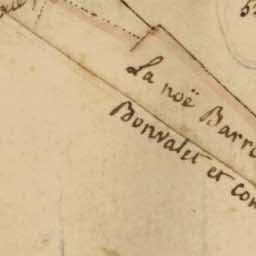 La noë Barre
Bonvalet et con